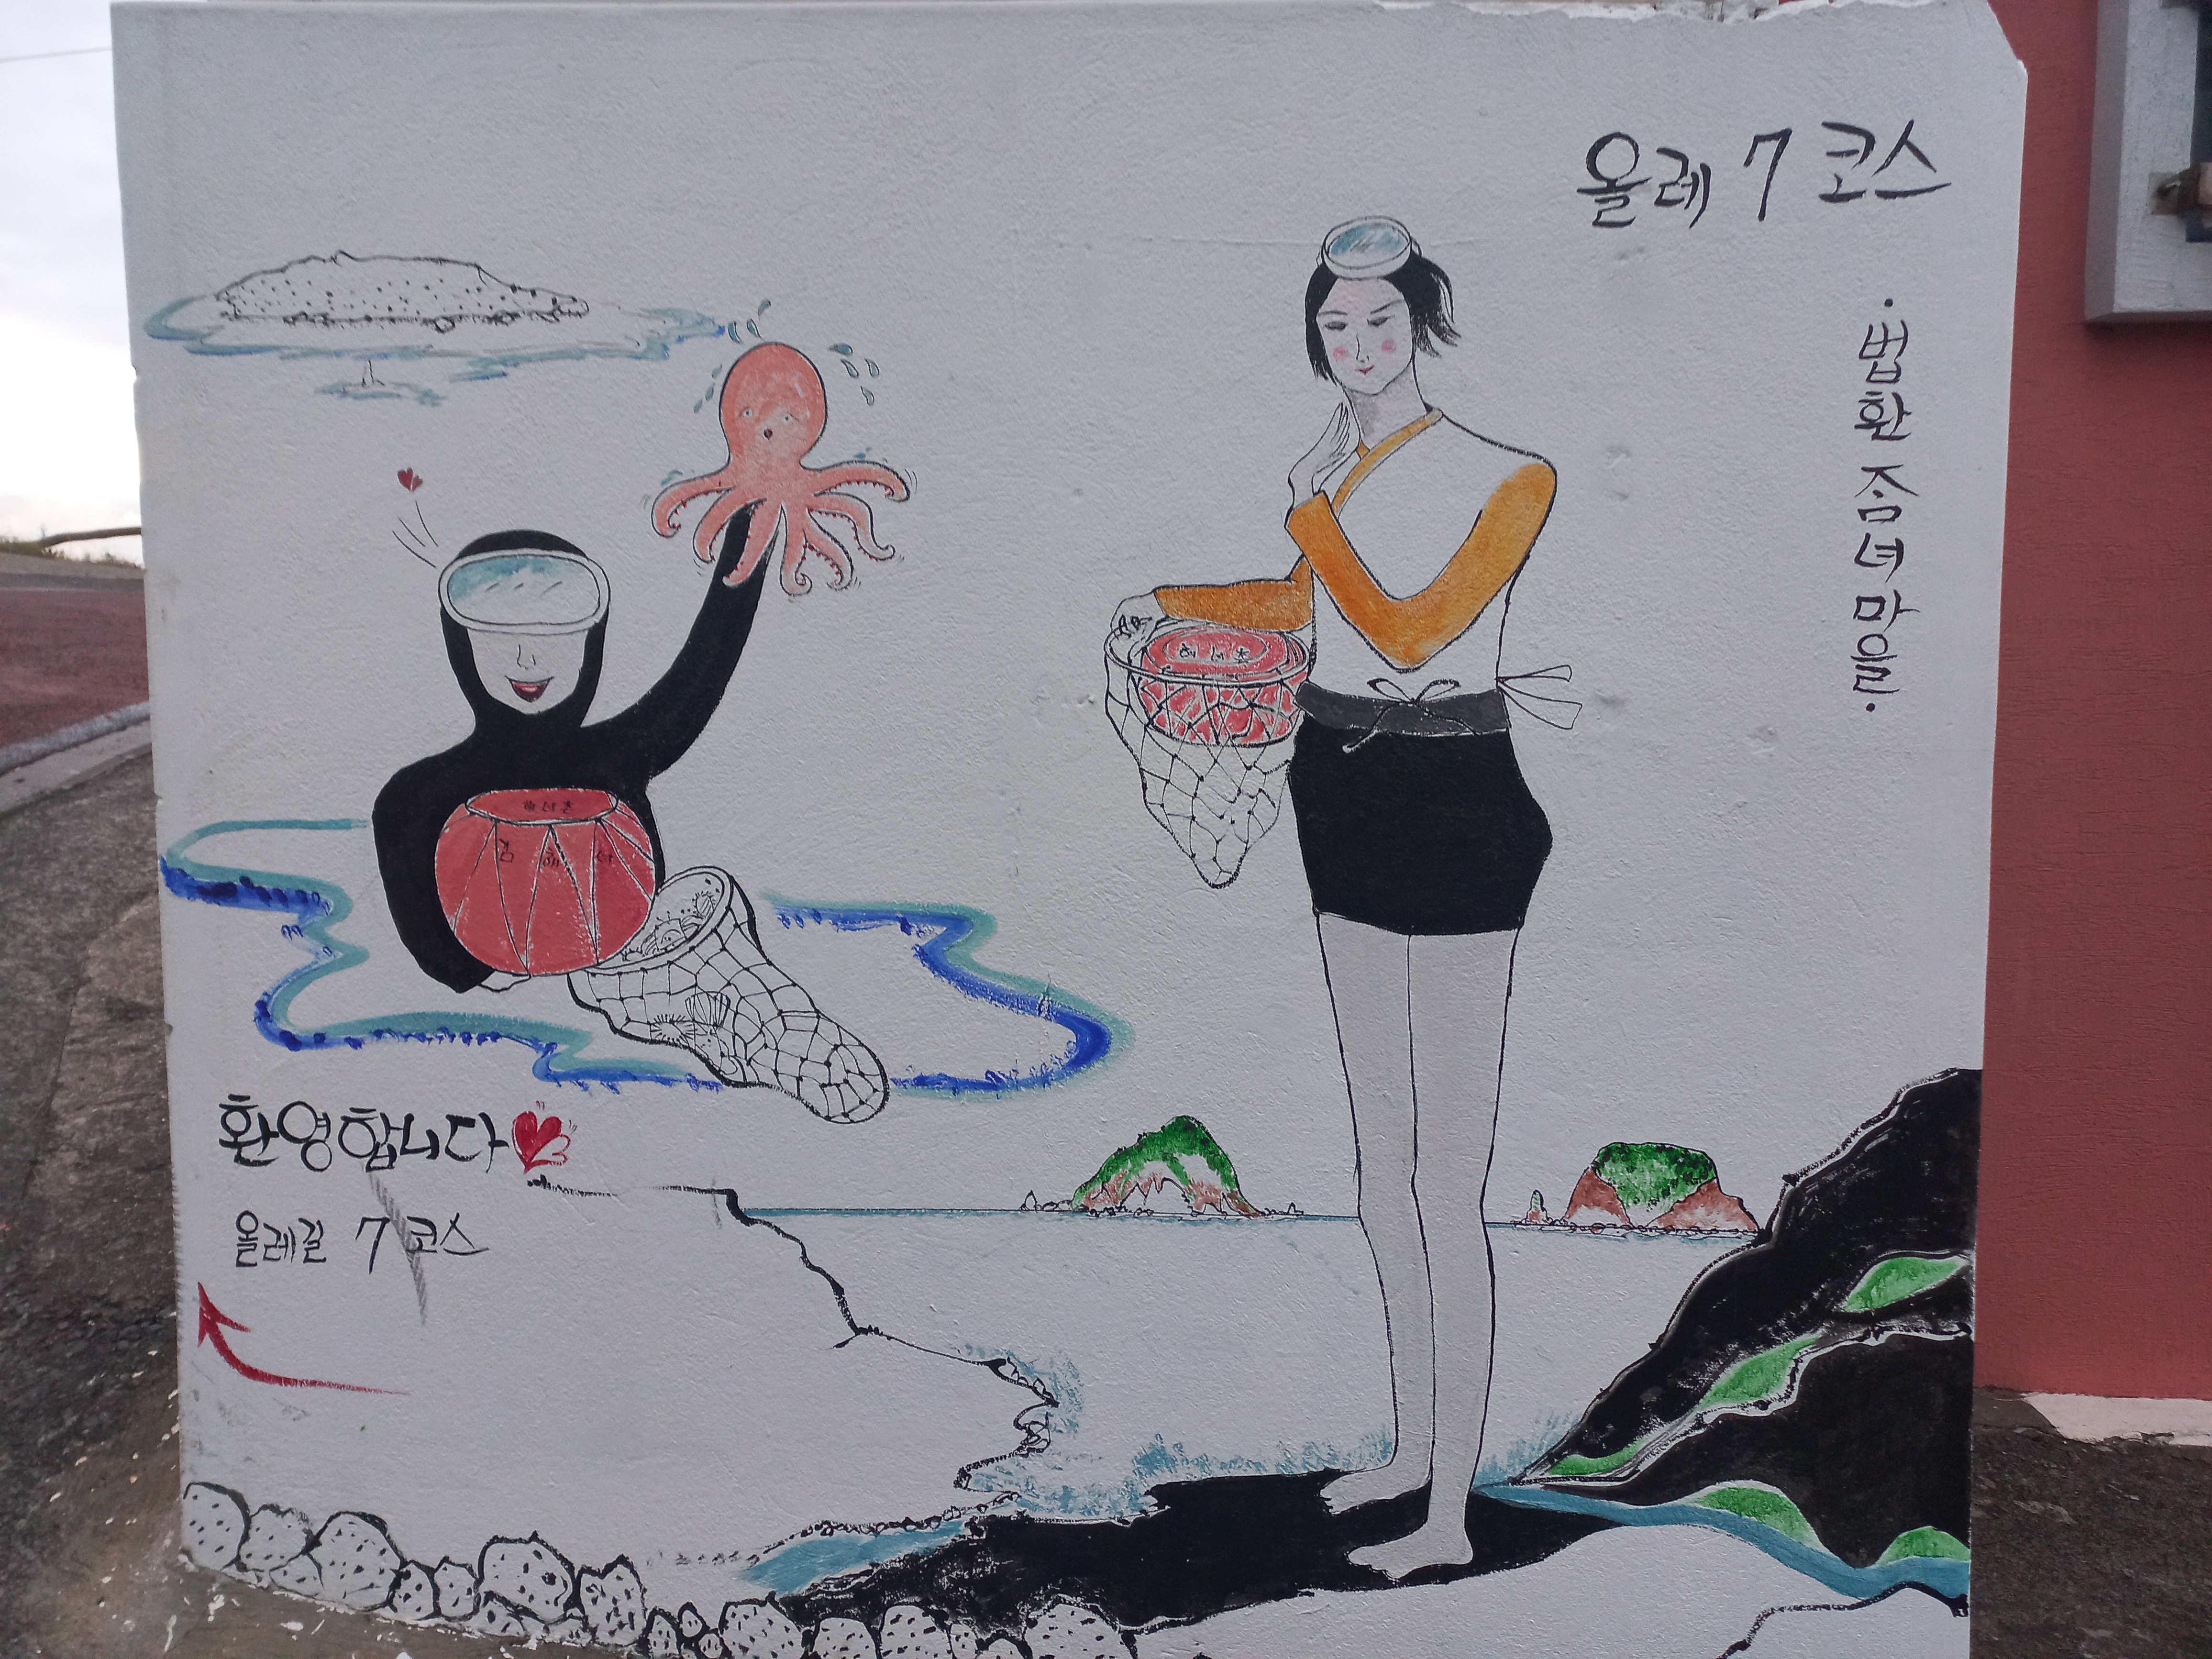 올레 7 코스
·법환 ᄌᆞᆷ녀 마을·
환영합니다
올레길 7 코스